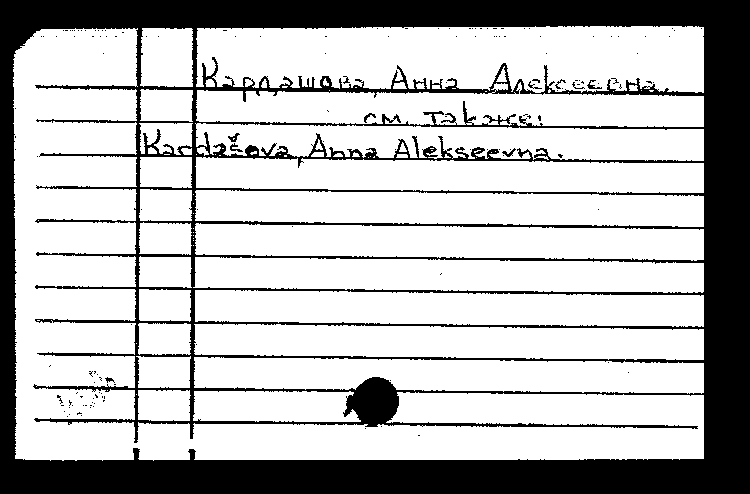 Кардашова, Анна Алексеевна.
см. также:
Kardašova, Anna Alekseevna.